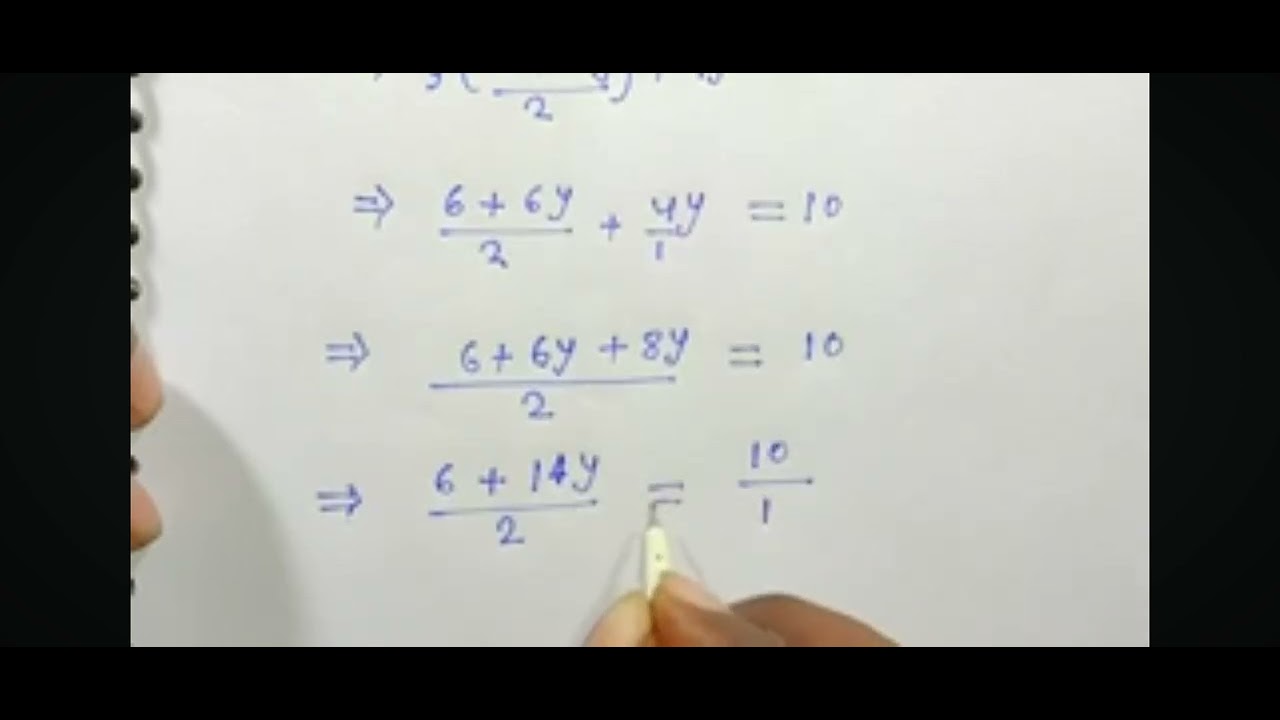 2
⇒ (6 + 6y)/2 + 4y/1 = 10
⇒ (6 + 6y + 8y)/2 = 10
⇒ (6 + 14y)/2 = 10/1